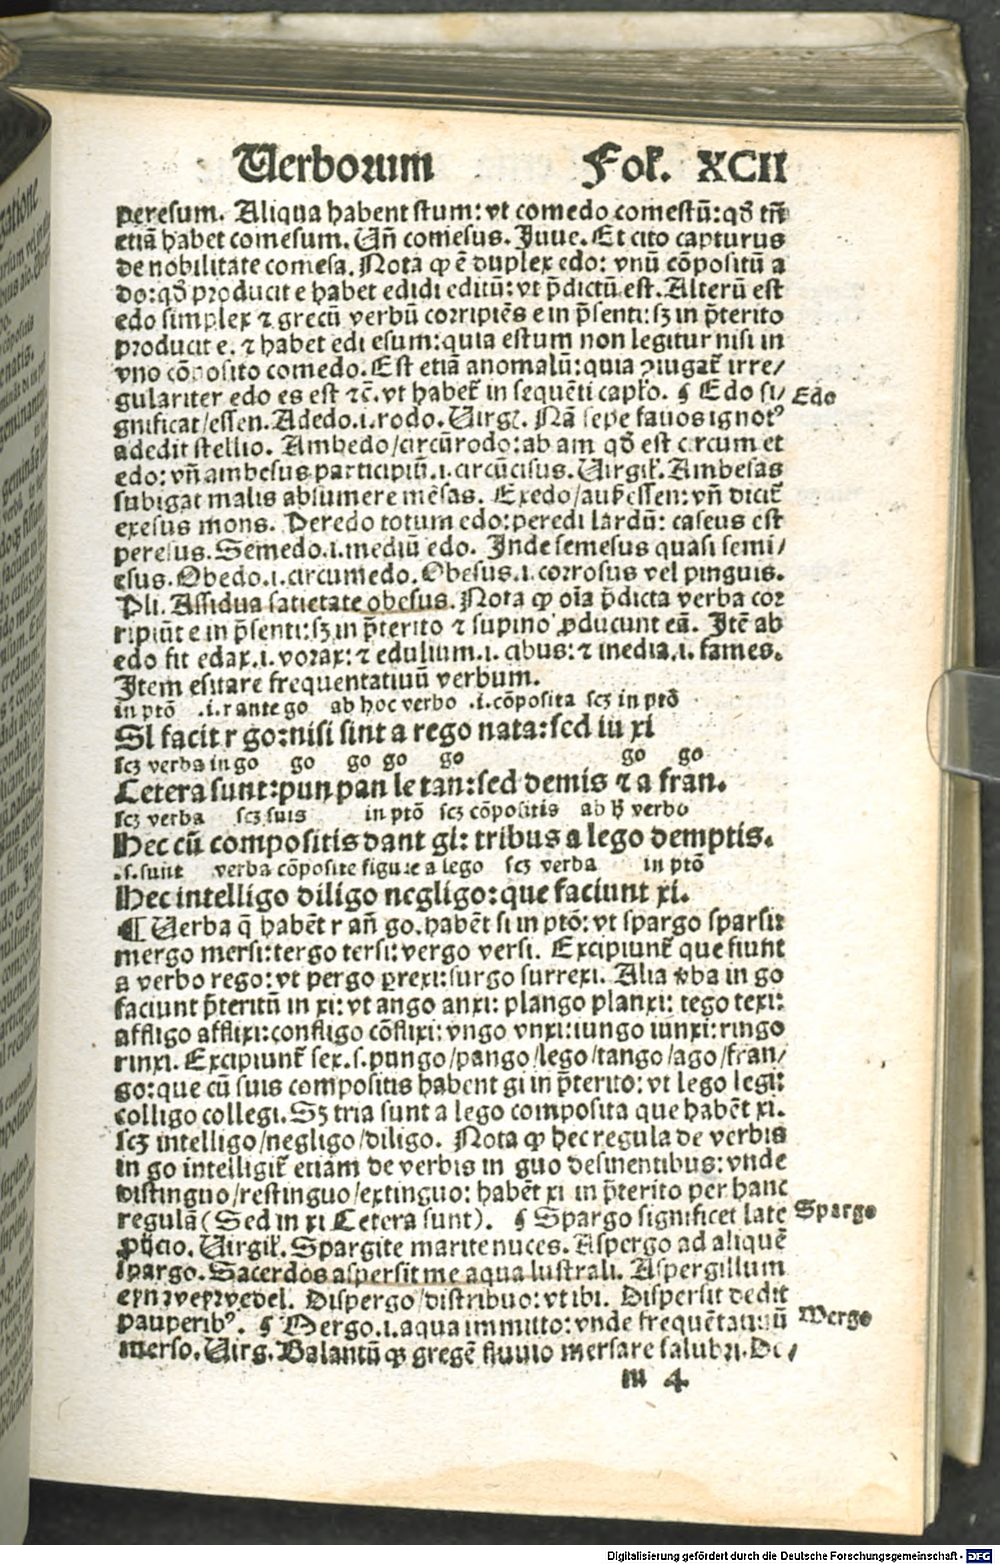 Verborum Fol. XCII
peresum. Aliqua habent stum: vt comedo comestū: qď tñ
etiā habet comesum. Vñ comesus. Juue. Et cito capturus
de nobilitate comesa. Nota ꝙ ē duplex edo: vnū cōpositū a
do: qď producit e habet edidi editū: vt p̄dictū est. Alterū est
edo simplex ⁊ grecū verbū corripiēs e in p̄senti: sꝫ in p̄terito
producit e. ⁊ habet edi esum: quia estum non legitur nisi in
vno cōposito comedo. Est etiā anomalū: quia ꝯiugat᷑ irre/
gulariter edo es est ⁊c̄. vt habet᷑ in sequēti capl̄o. ¶ Edo si/
Edo
gnificat/essen. Adedo .i. rodo. Virg. Nā sepe fauos ignotꝰ
adedit stellio. Ambedo/circūrodo: ab am qď est circum et
edo: vñ ambesus participiū .i. circūcisus. Virgil̄. Ambesas
subigat malis absumere mēsas. Exedo/auß essen: vñ dicit᷑
exesus mons. Peredo totum edo: peredi lardū: caseus est
peresus. Semedo .i. mediū edo. Inde semesus quasi semi/
esus. Obedo .i. circumedo. Obesus .i. corrosus vel pinguis.
Pli. Assidua satietate obesus. Nota ꝙ oīa p̄dicta verba cor
ripiūt e in p̄senti: sꝫ in p̄terito ⁊ supino ꝓducunt eā. Itē ab
edo fit edax .i. vorax: ⁊ edulium .i. cibus: ⁊ inedia .i. fames.
Item esitare frequentatiuū verbum.
in ptō .i. r ante go ab hoc verbo .i. cōposita scꝫ in ptō
SI facit r go: nisi sint a rego nata: sed in xi
scꝫ verba in go go go go go go go
Cetera sunt: pun pan le tan: sed demis ⁊ a fran.
scꝫ verba scꝫ suis in ptō scꝫ cōpositis ab h̄ verbo
Hec cū compositis dant gi: tribus a lego demptis.
.s. sunt verba cōposite figure a lego scꝫ verba in ptō
Hec intelligo diligo negligo: que faciunt xi.
¶ Verba q̄ habēt r añ go. habēt si in ptō: vt spargo sparsi:
mergo mersi: tergo tersi: vergo versi. Excipiunt᷑ que fiunt
a verbo rego: vt pergo perrexi: surgo surrexi. Alia v̄ba in go
faciunt p̄teritū in xi: vt ango anxi: plango planxi: tego texi:
affligo afflixi: confligo cōflixi: vngo vnxi: iungo iunxi: ringo
rinxi. Excipiunt᷑ sex .s. pungo/pango/lego/tango/ago/fran/
go: que cū suis compositis habent gi in p̄terito: vt lego legi:
colligo collegi. Sꝫ tria sunt a lego composita que habēt xi.
scꝫ intelligo/negligo/diligo. Nota ꝙ hec regula de verbis
in go intelligit᷑ etiam de verbis in guo desinentibus: vnde
distinguo/restinguo/extinguo: habēt xi in p̄terito per hanc
regulā (Sed in xi Cetera sunt). ¶ Spargo significet late
Spargo
ꝓijcio. Virgil̄. Spargite marite nuces. Aspergo ad aliquē
spargo. Sacerdos aspersit me aqua lustrali. Aspergillum
Dispergo/distribuo: vt ibi. Dispersit dedit
pauperibꝰ. ¶ Mergo .i. aqua immitto: vnde frequētatiuū
Mergo
merso. Virg. Balantū ꝙ gregē fluuio mersare salubri. De/
m 4
Digitalisierung gefördert durch die Deutsche Forschungsgemeinschaft - DFG